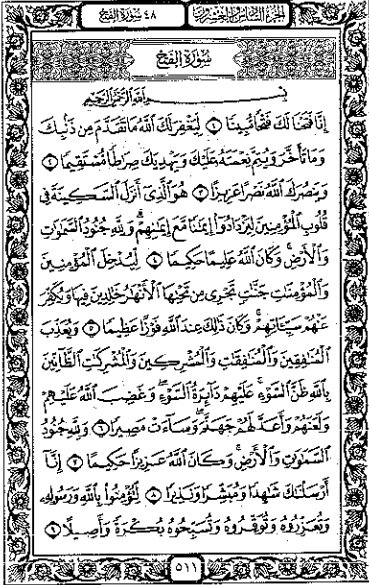 ٤٨ سورة الفتح
الجزء السادس والعشرون
سورة الفتح
بسم الله الرحمن الرحيم
إنا فتحنا لك فتحا مبينا ١ ليغفر لك الله ما تقدم من ذنبك
وما تأخر ويتم نعمته عليك ويهديك صرطا مستقيما ٢
وينصرك الله نصرا عزيزا ٣ هو الذى أنزل السكينة فى
قلوب المؤمنين ليزدادوا إيمنا مع إيمنهم ولله جنود السموت
والأرض وكان الله عليما حكيما ٤ ليدخل المؤمنين
والمؤمنت جنت تجرى من تحتها الأنهر خلدين فيها ويكفر
عنهم سيئاتهم وكان ذلك عند الله فوزا عظيما ٥ ويعذب
المنفقين والمنفقت والمشركين والمشركت الظانين
بالله ظن السوء عليهم دائرة السوء وغضب الله عليهم
ولعنهم وأعد لهم جهنم وساءت مصيرا ٦ ولله جنود
السموت والأرض وكان الله عزيزا حكيما ٧ إنا
أرسلنك شهدا ومبشرا ونذيرا ٨ لتؤمنوا بالله ورسوله
وتعزروه وتوقروه وتسبحوه بكرة وأصيلا ٩
٥١١